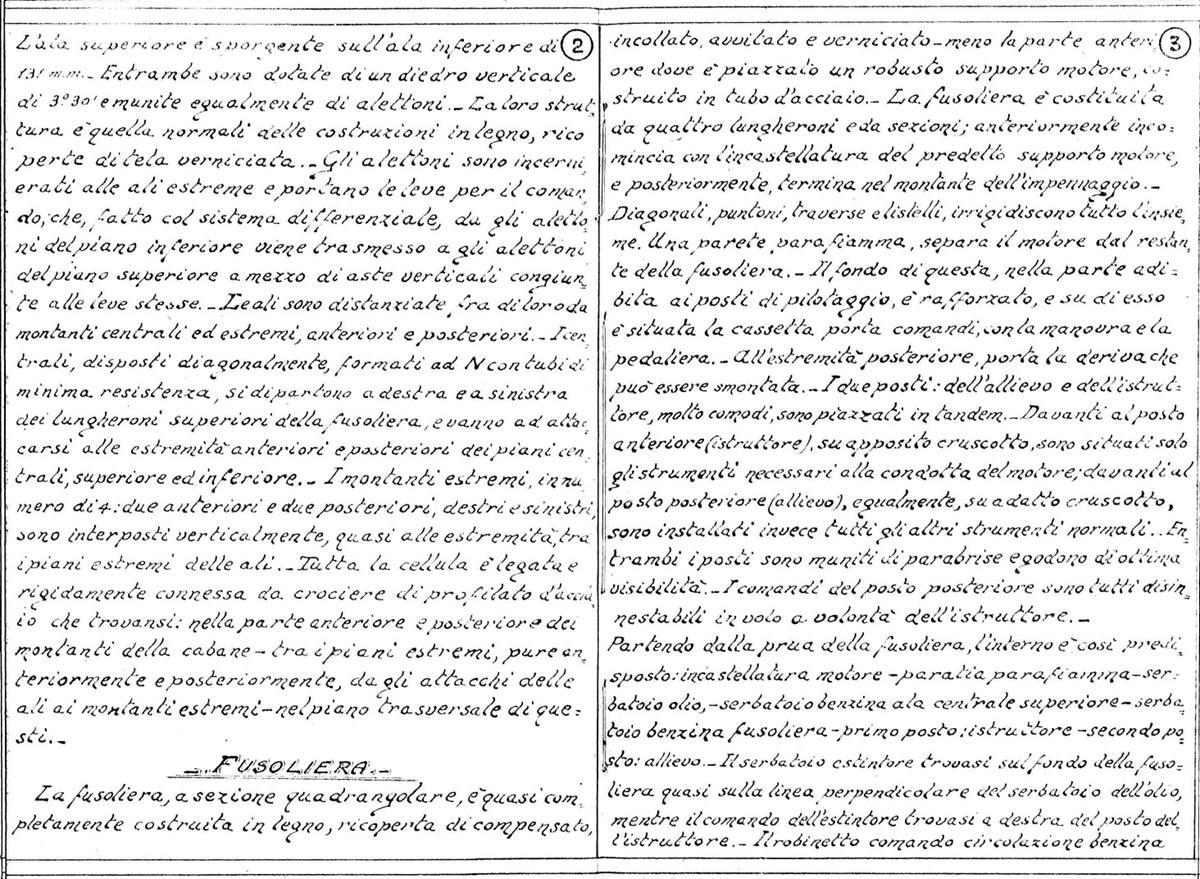 L'ala superiore è sporgente sull'ala inferiore di 2
131 m.m.- Entrambe sono dotate di un diedro verticale
di 3°30' e munite egualmente di alettoni.- La loro strut-
tura è quella normali delle costruzioni in legno, rico
perte di tela verniciata.- Gli alettoni sono incerni-
erati alle ali estreme e portano le leve per il coman-
do, che, fatto col sistema differenziale, da gli aletto-
ni del piano inferiore viene trasmesso a gli alettoni
del piano superiore a mezzo di aste verticali congiun-
te alle leve stesse.- Le ali sono distanziate fra di loro da
montanti centrali ed estremi, anteriori e posteriori.- I cen-
trali, disposti diagonalmente, formati ad N con tubi di
minima resistenza, si dipartono a destra e a sinistra
dei lungheroni superiori della fusoliera, e vanno ad attac-
carsi alle estremità anteriori e posteriori dei piani cen-
trali, superiore ed inferiore.- I montanti estremi, in nu-
mero di 4: due anteriori e due posteriori, destri e sinistri,
sono interposti verticalmente, quasi alle estremità, tra
i piani estremi delle ali.- Tutta la cellula è legata e
rigidamente connessa da crociere di profilato d'accia-
io che trovansi: nella parte anteriore e posteriore dei
montanti della cabane - tra i piani estremi, pure an-
teriormente e posteriormente, da gli attacchi delle
ali ai montanti estremi - nel piano trasversale di que-
sti.-
-. FUSOLIERA.-
La fusoliera, a sezione quadrangolare, è quasi com-
pletamente costruita in legno, ricoperta di compensato,
incollato, avvitato e verniciato - meno la parte anteri- 3
ore dove è piazzato un robusto supporto motore, co-
struito in tubo d'acciaio.- La fusoliera è costituita
da quattro lungheroni e da sezioni; anteriormente inco-
mincia con l'incastellatura del predetto supporto motore,
e posteriormente, termina nel montante dell'impennaggio.-
Diagonali, puntoni, traverse e listelli, irrigidiscono tutto l'insie-
me. Una parete parafiamma, separa il motore dal restan-
te della fusoliera.- Il fondo di questa, nella parte adi-
bita ai posti di pilotaggio, è rafforzato, e su di esso
è situata la cassetta porta comandi, con la manovra e la
pedaliera.- All'estremità posteriore, porta la deriva che
può essere smontata.- I due posti: dell'allievo e dell'istrut-
tore, molto comodi, sono piazzati in tandem.- Davanti al posto
anteriore (istruttore), su apposito cruscotto, sono situati solo
gli strumenti necessari alla condotta del motore; davanti al
posto posteriore (allievo), egualmente, su adatto cruscotto,
sono installati invece tutti gli altri strumenti normali.. En-
trambi i posti sono muniti di parabrise e godono di ottima
visibilità.- I comandi del posto posteriore sono tutti disin-
nestabili in volo a volontà dell'istruttore.-
Partendo dalla prua della fusoliera, l'interno è così predi-
sposto: incastellatura motore - paratia parafiamma - ser-
batoio olio, - serbatoio benzina ala centrale superiore - serba-
toio benzina fusoliera - primo posto: istruttore - secondo po-
sto: allievo.- Il serbatoio estintore trovasi sul fondo della fuso-
liera quasi sulla linea perpendicolare del serbatoio dell'olio,
mentre il comando dell'estintore trovasi a destra del posto del-
l'istruttore.- Il robinetto comando circolazione benzina